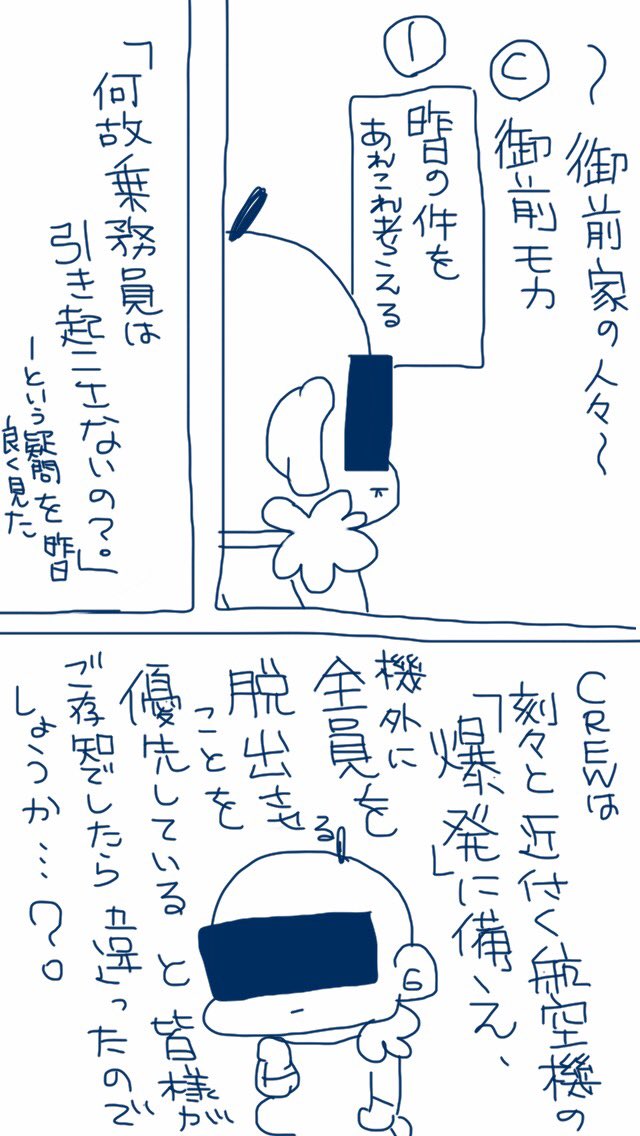 〜御前家の人々〜
©御前モカ
①
昨日の件を
あれこれ考える
「何故乗務員は
引き起こさないの？。」
ーという疑問を昨日
良く見た
CREWは
刻々と近付く航空機の
「爆発」に備え、
機外に
全員を
脱出させる
ことを
優先していると皆様が
ご存知でしたら違ったので
しょうか…？。